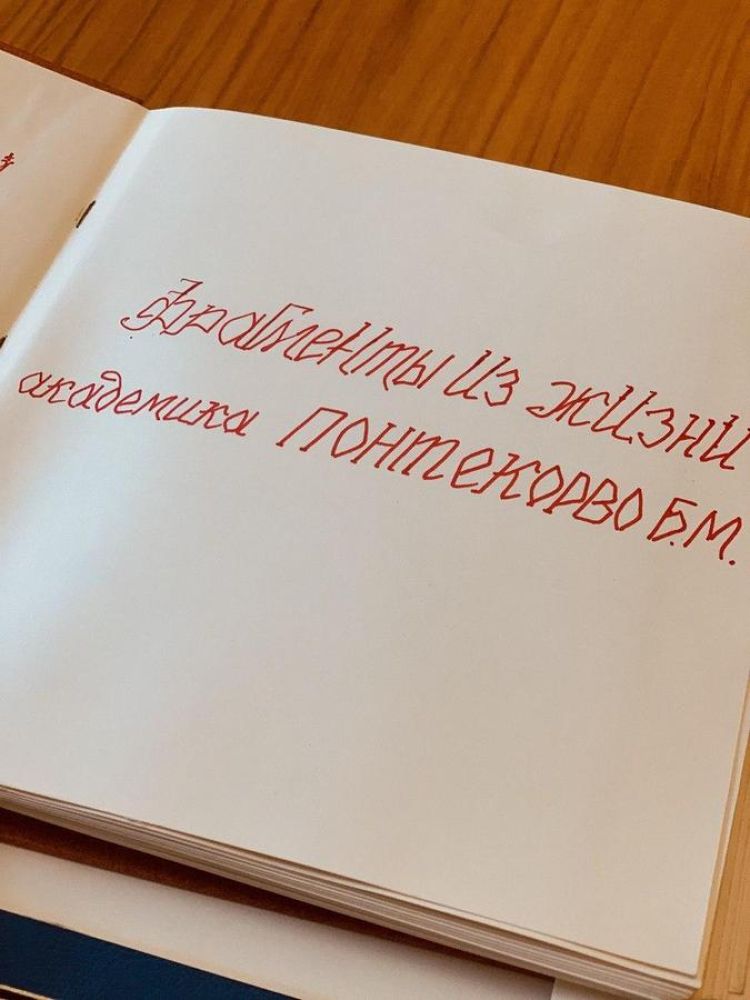 Фрагменты из жизни
академика ПОНТЕКОРВО Б.М.